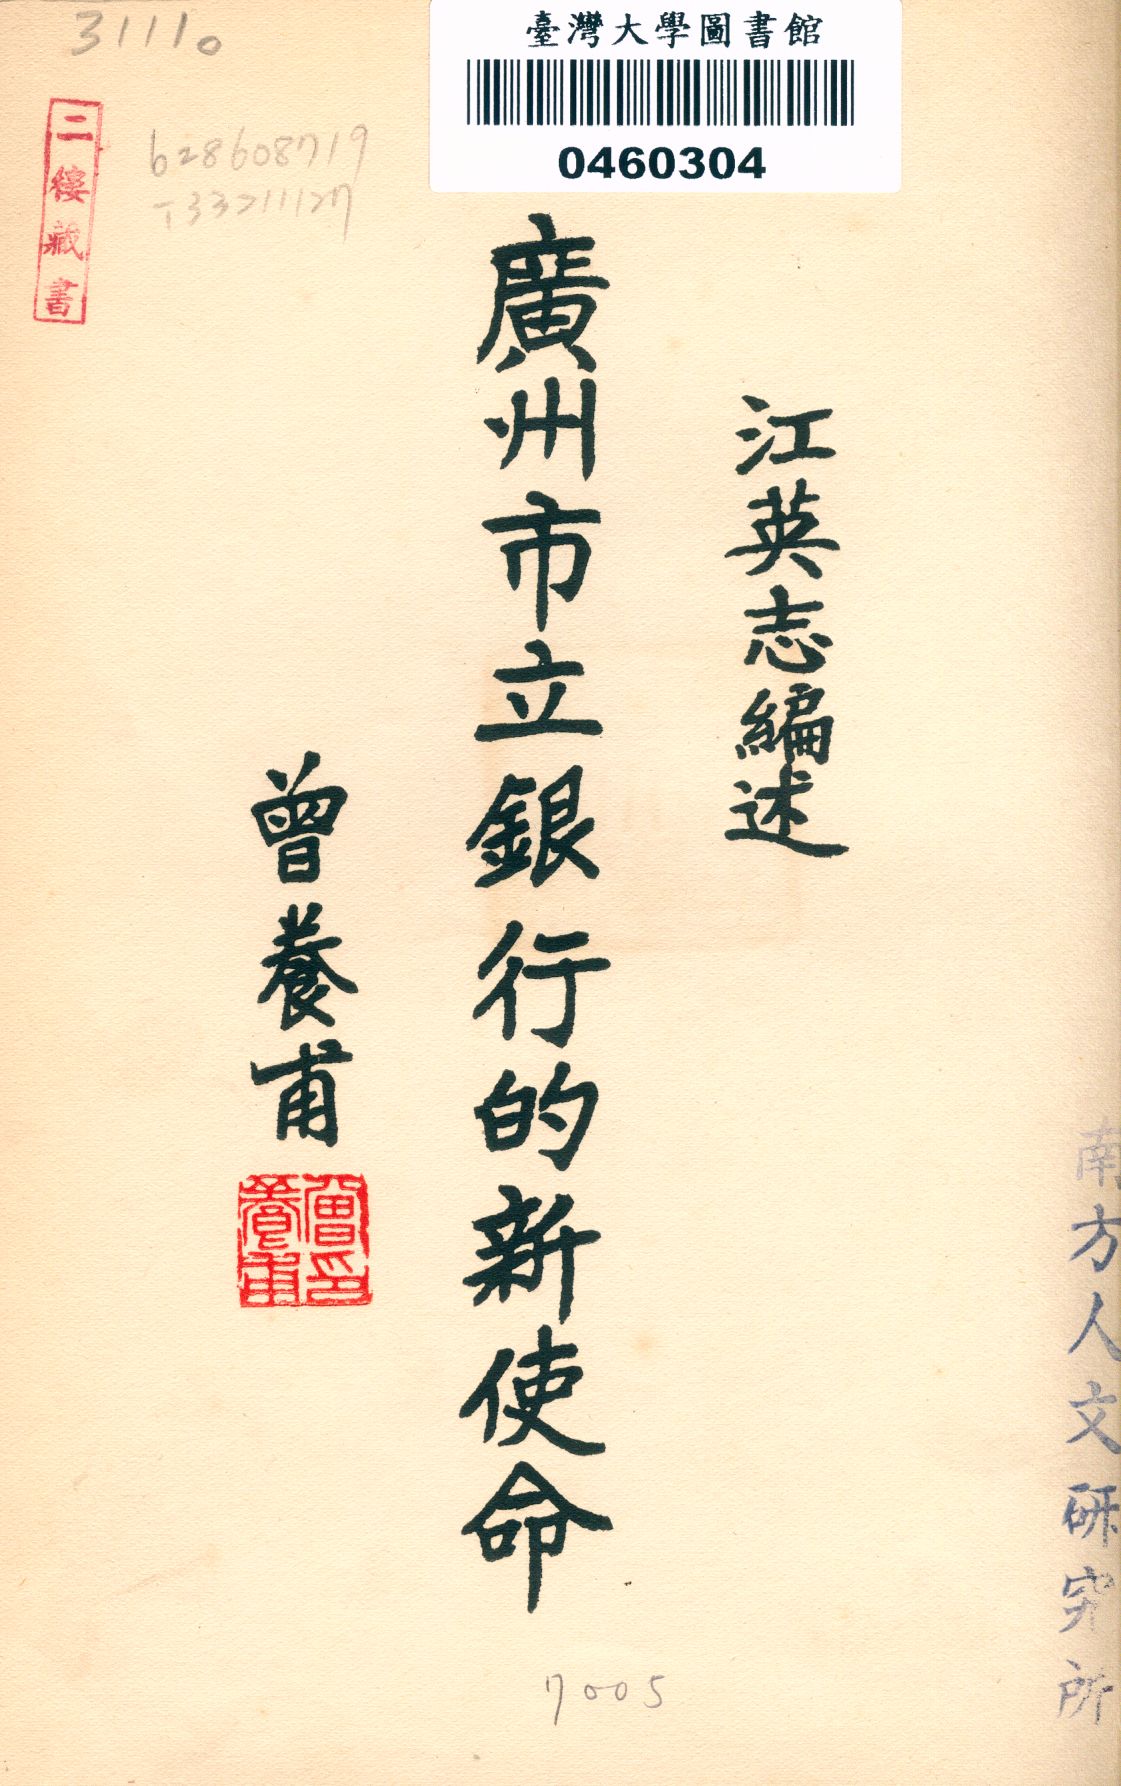 3111。
臺灣大學圖書館
0460304
二樓藏書
b28608719
江英志編述
廣州市立銀行的新使命
曾養甫
曾養甫印
南方人文研究所
7005